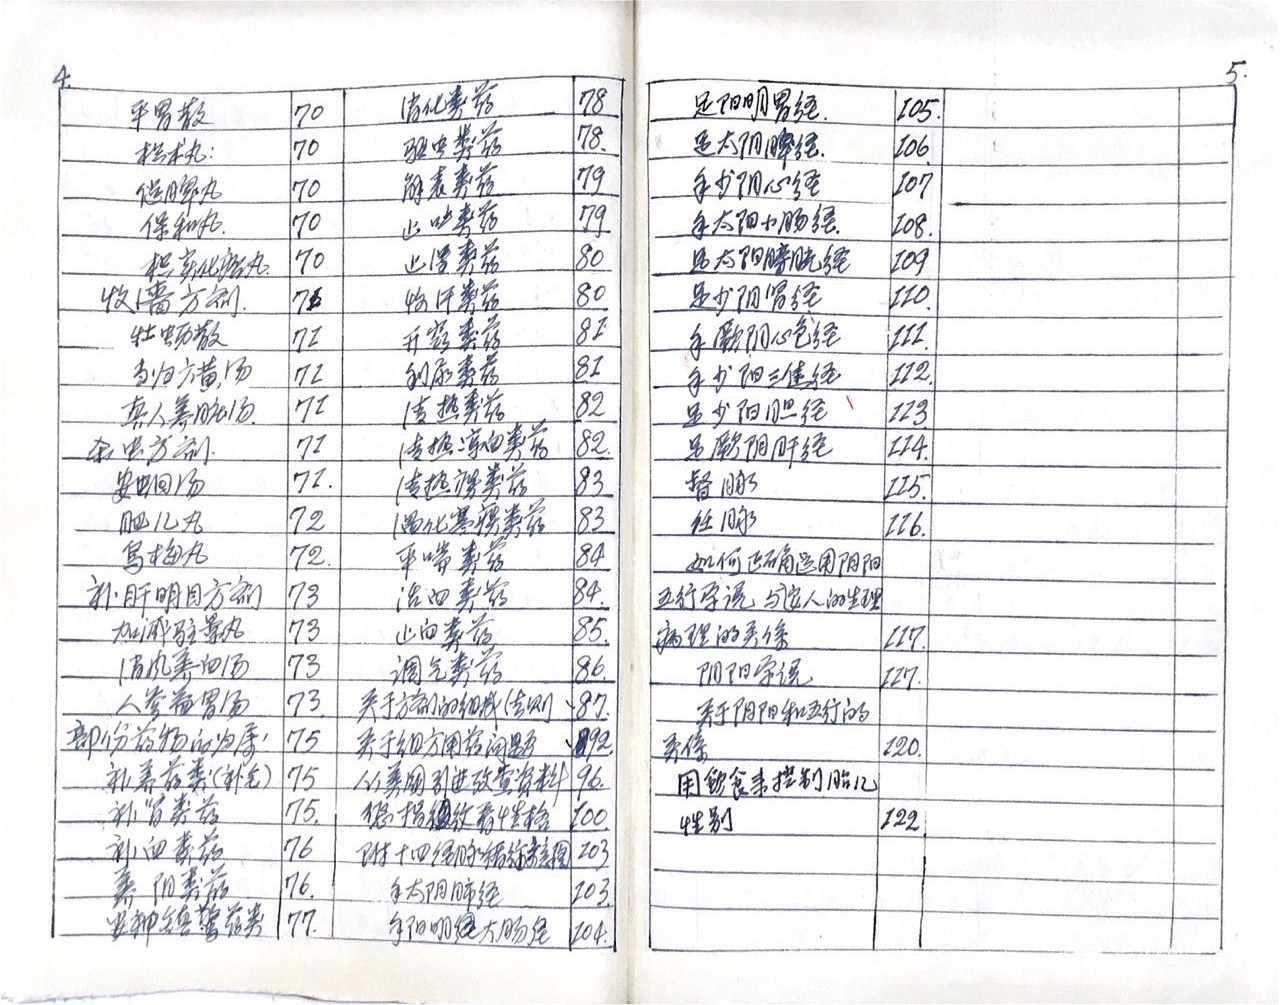 4.
平胃散 70
枳术丸: 70
健脾丸 70
保和丸. 70
枳实化痞丸. 70
收濇方剂. 71
牡蛎散 71
当归六黄汤 71
真人养脏汤. 71
杀虫方剂. 71
安蛔汤 71.
肥儿丸 72
乌梅丸 72.
补肝明目方剂 73
加减驻景丸 73
消风养血汤 73
人参益胃汤 73.
部份药物的归属. 75
补养药类(补气) 75
补肾类药 75.
补血类药 76
养阴类药 76.
安神镇惊药类 77.
消化类药 78
驱虫类药 78.
解表类药 79
止吐类药 79
止濇类药 80
敛汗类药 80
开窍类药 81
利尿类药 81
清热类药 82
清热凉血类药 82.
清热痰类药 83
温化寒痰类药 83
平喘类药 84
活血类药 84.
止血类药 85.
调气类药 86.
关于方剂的组成法则 87.
关于组方用药问题 92
从美国引进改查资料 96.
纹看性格 100.
附十四经脉循行 103
手太阴肺经 103.
手阳明经大肠经 104.
5.
足阳明胃经. 105.
足太阴脾经. 106
手少阴心经 107
手太阳小肠经. 108.
足太阳膀胱经 109
足少阴肾经 110.
手厥阴心包经 111.
手少阳三焦经 112.
足少阳胆经 113
足厥阴肝经 114.
督脉 115.
任脉 116.
如何正确运用阴阳
五行学说 与 人的生理
病理的关系 117.
阴阳学说 117.
关于阴阳和五行的
关系 120.
用饮食来控制胎儿
性别 122.